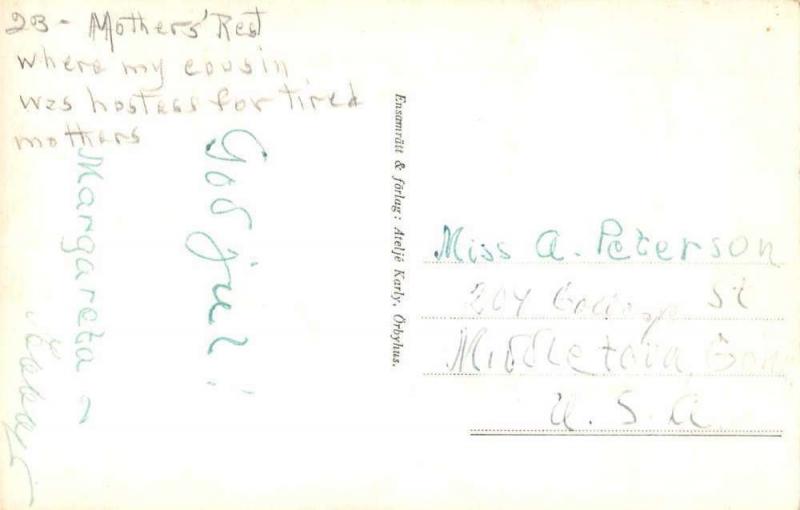 23 - Mothers' Rest
where my cousin
was hostess for tired
mothers
God jul!
Margareta
Ensamrätt & förlag: Ateljé Karly, Örbyhus.
Miss A. Peterson
204 St
Middletown, Conn
U. S. A